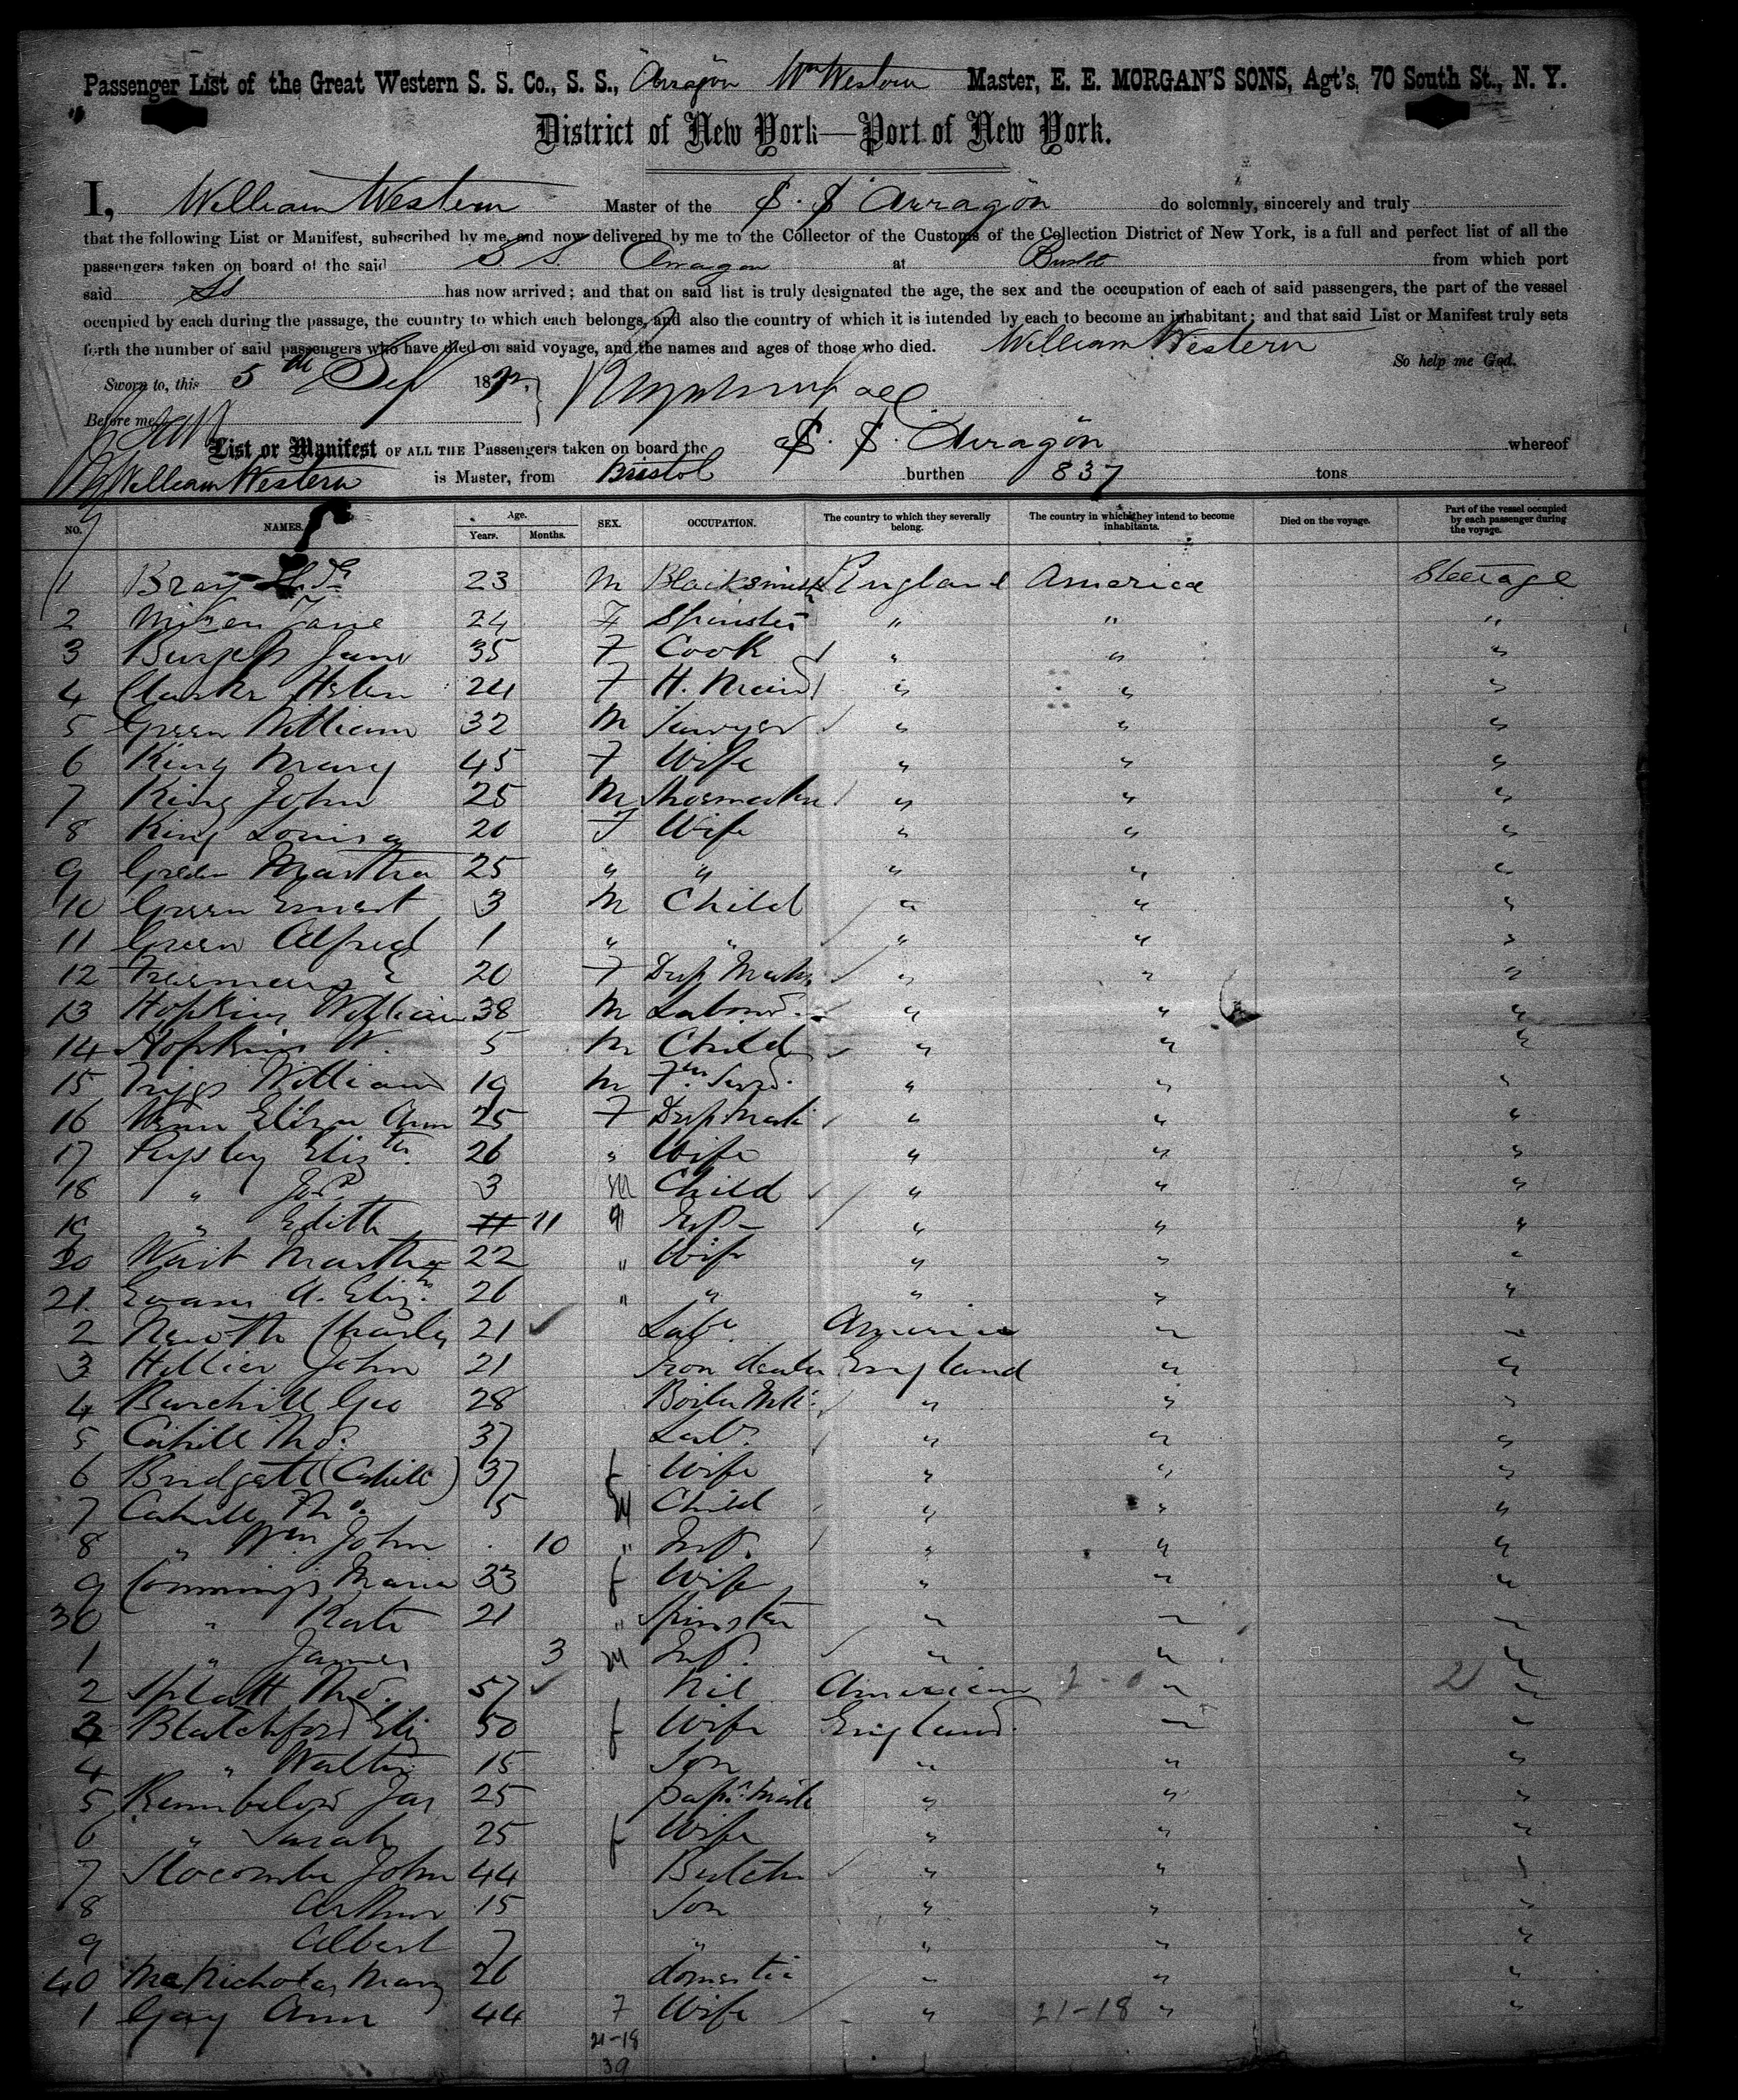 Passenger List of the Great Western S. S. Co., S. S., Arragon Wm Western Master, E. E. MORGAN'S SONS, Agt's, 70 South St., N. Y.
District of New York—Port of New York.
I, William Western Master of the S. S Arragon do solemnly, sincerely and truly
that the following List or Manifest, subscribed by me, and now delivered by me to the Collector of the Customs of the Collection District of New York, is a full and perfect list of all the
passengers taken on board of the said S S. Arragon at from which port
said SS has now arrived; and that on said list is truly designated the age, the sex and the occupation of each of said passengers, the part of the vessel
occupied by each during the passage, the country to which each belongs, and also the country of which it is intended by each to become an inhabitant; and that said List or Manifest truly sets
forth the number of said passengers who have died on said voyage, and the names and ages of those who died. William Western So help me God.
Sworn to, this 5th Sep 187
Before me
List or Manifest OF ALL THE Passengers taken on board the S. S. Arragon whereof
William Western is Master, from Bristol burthen 837 tons
NO. NAMES. Age. Years. Months. SEX. OCCUPATION. The country to which they severally belong. The country in which they intend to become inhabitants. Died on the voyage. Part of the vessel occupied by each passenger during the voyage.
1 Bray 23 M Blacksmith England America Steerage
2 Jane 24 F Spinster " " "
3 Burgess Jane 35 F Cook " " "
4 Clarke Helen 24 F H. Maid " " "
5 Green William 32 M Sawyer " " "
6 King Mary 45 F Wife " " "
7 King John 25 M Shoemaker " " "
8 King Louisa 20 F Wife " " "
9 Green Martha 25 " " " " "
10 Green Ernest 3 M Child " " "
11 Green Alfred 1 " " " " "
12 E 20 F Dress Maker " " "
13 Hopkins William 38 M Labourer " " "
14 Hopkins W. 5 M Child " " "
15 William 19 M " " "
16 Eliza Ann 25 F Dress Maker " " "
17 Elizth. 26 " Wife " " "
18 " Jos. 3 M Child " " "
19 " Edith 11 Inf " " "
20 Wait Martha 22 " Wife " " "
21. Evans A. Elizth. 26 " " " " "
2 Newth Charles 21 Labr. America " "
3 Hillier John 21 Iron dealer England " "
4 Burchill Geo 28 Boiler Mkr. " " "
5 Cahill Thos. 37 Labr. " " "
6 Bridgett (Cahill) 37 f Wife " " "
7 Cahill Thos. 5 M Child " " "
8 " Wm John 10 " Inf. " " "
9 Commings Maria 33 f Wife " " "
30 " Kate 21 " Spinster " " "
1 " James 3 M Inf. " " "
2 Splatt Thos. 57 Nil American " "
3 Blatchford Eliz 50 f Wife England. " "
4 " Walter 15 Son " " "
5 Jas 25 " " "
6 " Sarah 25 f Wife " " "
7 Slocombe John 44 Butcher " " "
8 Arthur 15 Son " " "
9 Albert 7 " " " "
40 McNicholas Mary 26 domestic " " "
1 Gay Ann 44 F Wife " 21-18 " "
21-18
39